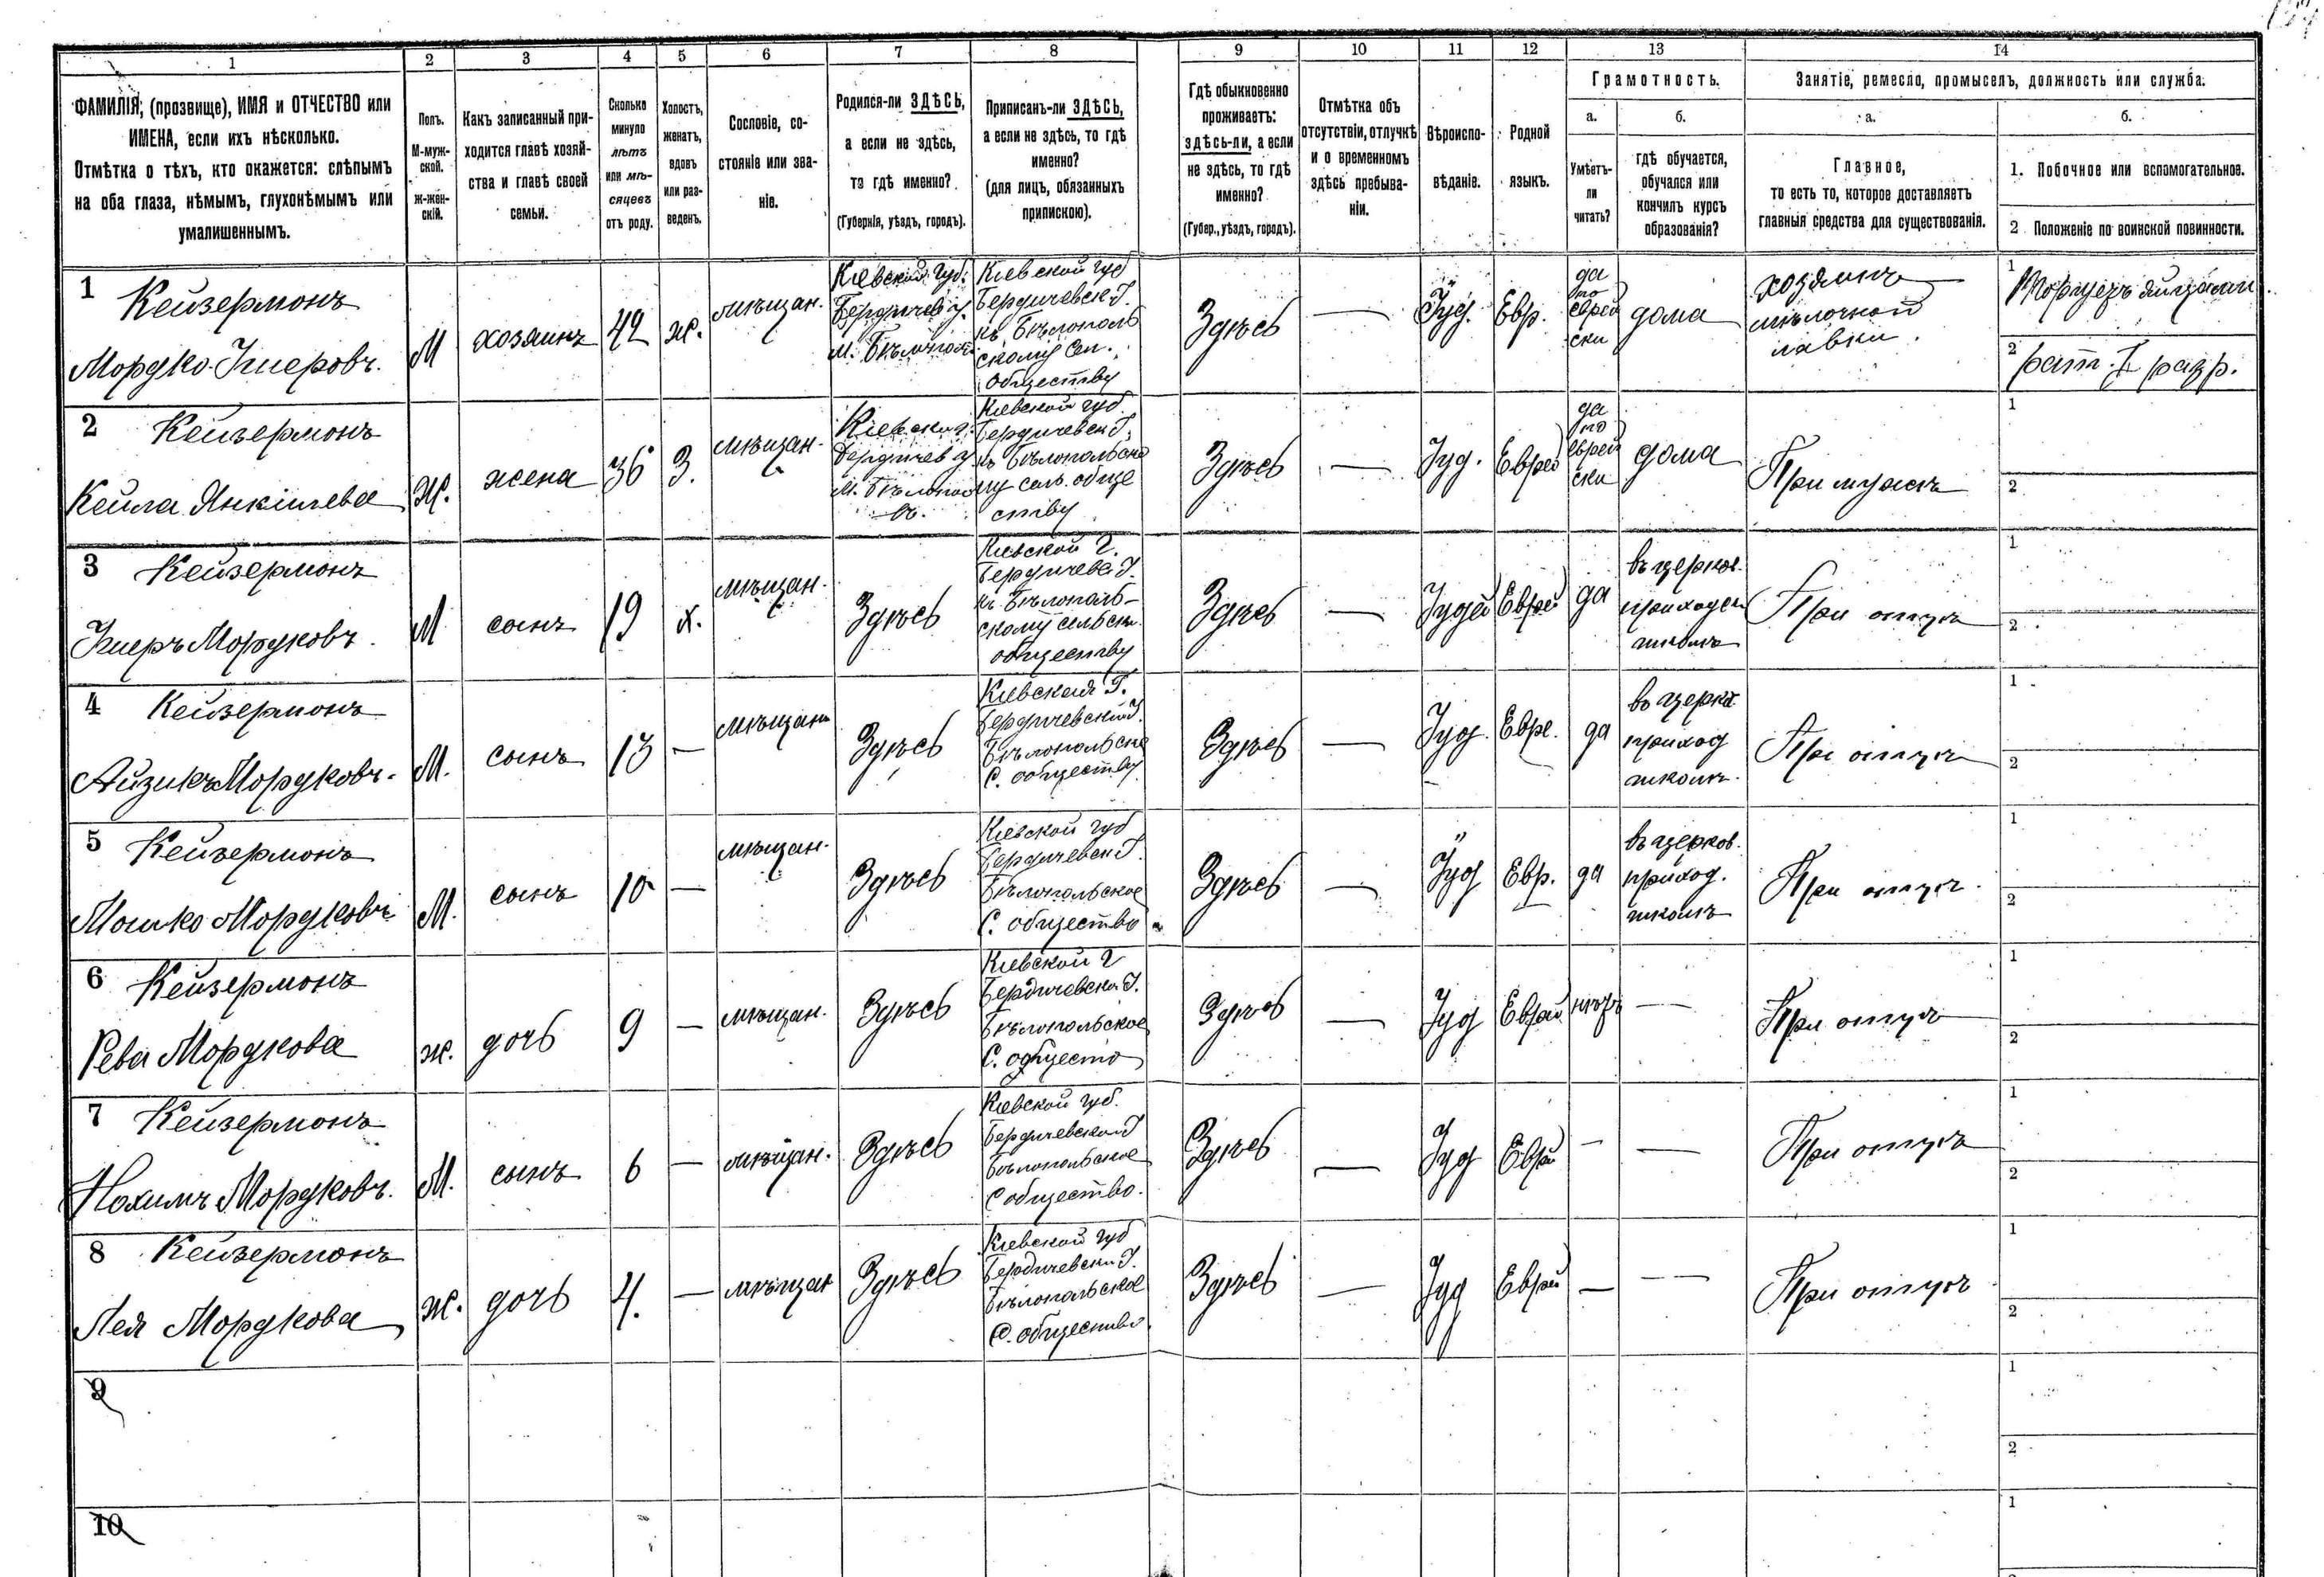 1
2
3
4
5
6
7
8
9
10
11
12
13
14
ФАМИЛІЯ, (прозвище), ИМЯ и ОТЧЕСТВО или
ИМЕНА, если ихъ нѣсколько.
Отмѣтка о тѣхъ, кто окажется: слѣпымъ
на оба глаза, нѣмымъ, глухонѣмымъ или
умалишеннымъ.
Полъ.
М-муж-
ской.
Ж-жен-
скій.
Какъ записанный при-
ходится главѣ хозяй-
ства и главѣ своей
семьи.
Сколько
минуло
лѣтъ
или мѣ-
сяцевъ
отъ роду.
Холостъ,
женатъ,
вдовъ
или раз-
веденъ.
Сословіе, со-
стояніе или зва-
ніе.
Родился-ли ЗДѢСЬ,
а если не здѣсь,
то гдѣ именно?
(Губернія, уѣздъ, городъ).
Приписанъ-ли ЗДѢСЬ,
а если не здѣсь, то гдѣ
именно?
(для лицъ, обязанныхъ
припискою).
Гдѣ обыкновенно
проживаетъ:
здѣсь-ли, а если
не здѣсь, то гдѣ
именно?
(Губер., уѣздъ, городъ).
Отмѣтка объ
отсутствіи, отлучкѣ
и о временномъ
здѣсь пребыва-
ніи.
Вѣроиспо-
вѣданіе.
Родной
языкъ.
Грамотность.
а.
Умѣетъ-
ли
читать?
б.
гдѣ обучается,
обучался или
кончилъ курсъ
образованія?
Занятіе, ремесло, промыселъ, должность или служба.
а.
Главное,
то есть то, которое доставляетъ
главныя средства для существованія.
б.
1. Побочное или вспомогательное.
2 Положеніе по воинской повинности.
1
Кейзермонъ
Мордко Ишеровъ.
М
хозяинъ
42
ж.
мѣщан.
Кіевской губ.
Бердичев у.
м. Бѣлополь
Кіевской губ
Бердичевск У.
къ Бѣлополь
скому Сел.
Обществу
Здѣсь
—
Іуд.
Евр.
да
по
еврей
ски
дома
хозяинъ
мѣлочной
лавки.
1
2
рат. I разр.
2
Кейзермонъ
Кейла Янкілева
Ж.
жена
36
З.
мѣщан.
Кіевская
Бердичев у
м. Бѣлопол
ь.
Кіевской губ
Бердичевск У.
къ Бѣлопольско
му сель. обще
ству
Здѣсь
—
Іуд.
Еврей
да
по
еврей
ски
дома
При мужѣ
1
2
3
Кейзермонъ
Ишеръ Мордковъ.
М
сынъ
19
х.
мѣщан.
Здѣсь
Кіевской г.
Бердичевс У.
къ Бѣлополь-
скому сельск.
обществу
Здѣсь
—
Іудей
Еврей
да
въ церков.
приходск
школѣ
При отцѣ
1
2
4
Кейзермонъ
Айзикъ Мордковъ.
М.
сынъ
13
—
мѣщан
Здѣсь
Кіевская Г.
Бердичевской У.
Бѣлопольско
С. обществу
Здѣсь
—
Іуд.
Евре.
да
въ церков
приход
школѣ.
При отцѣ
1
2
5
Кейзермонъ
Мошко Мордковъ
М.
сынъ
10
—
мѣщан.
Здѣсь
Кіевской губ
Бердичевск У.
Бѣлопольское
С. общество
Здѣсь
—
Іуд
Евр.
да
въ церков.
приход.
школѣ
При отцѣ.
1
2
6
Кейзермонъ
Рева Мордкова
ж.
дочь
9
—
мѣщан.
Здѣсь
Кіевской г
Бердичевска У.
Бѣлопольское
С. общество
Здѣсь
—
Іуд
Еврей
нѣтъ
—
При отцѣ
1
2
7
Кейзермонъ
Нохимъ Мордковъ.
М.
сынъ
6
—
мѣщан.
Здѣсь
Кіевской губ.
Бердичевской У
Бѣлопольское
С общество.
Здѣсь
—
Іуд
Еврей
—
—
При отцѣ
1
2
8
Кейзермонъ
Лея Мордкова
ж.
дочь
4.
—
мѣщан
Здѣсь
Кіевской губ
Бердичевски У.
Бѣлопольское
С. общество.
Здѣсь
—
Іуд
Еврей
—
—
При отцѣ
1
2
9
1
2
10
1